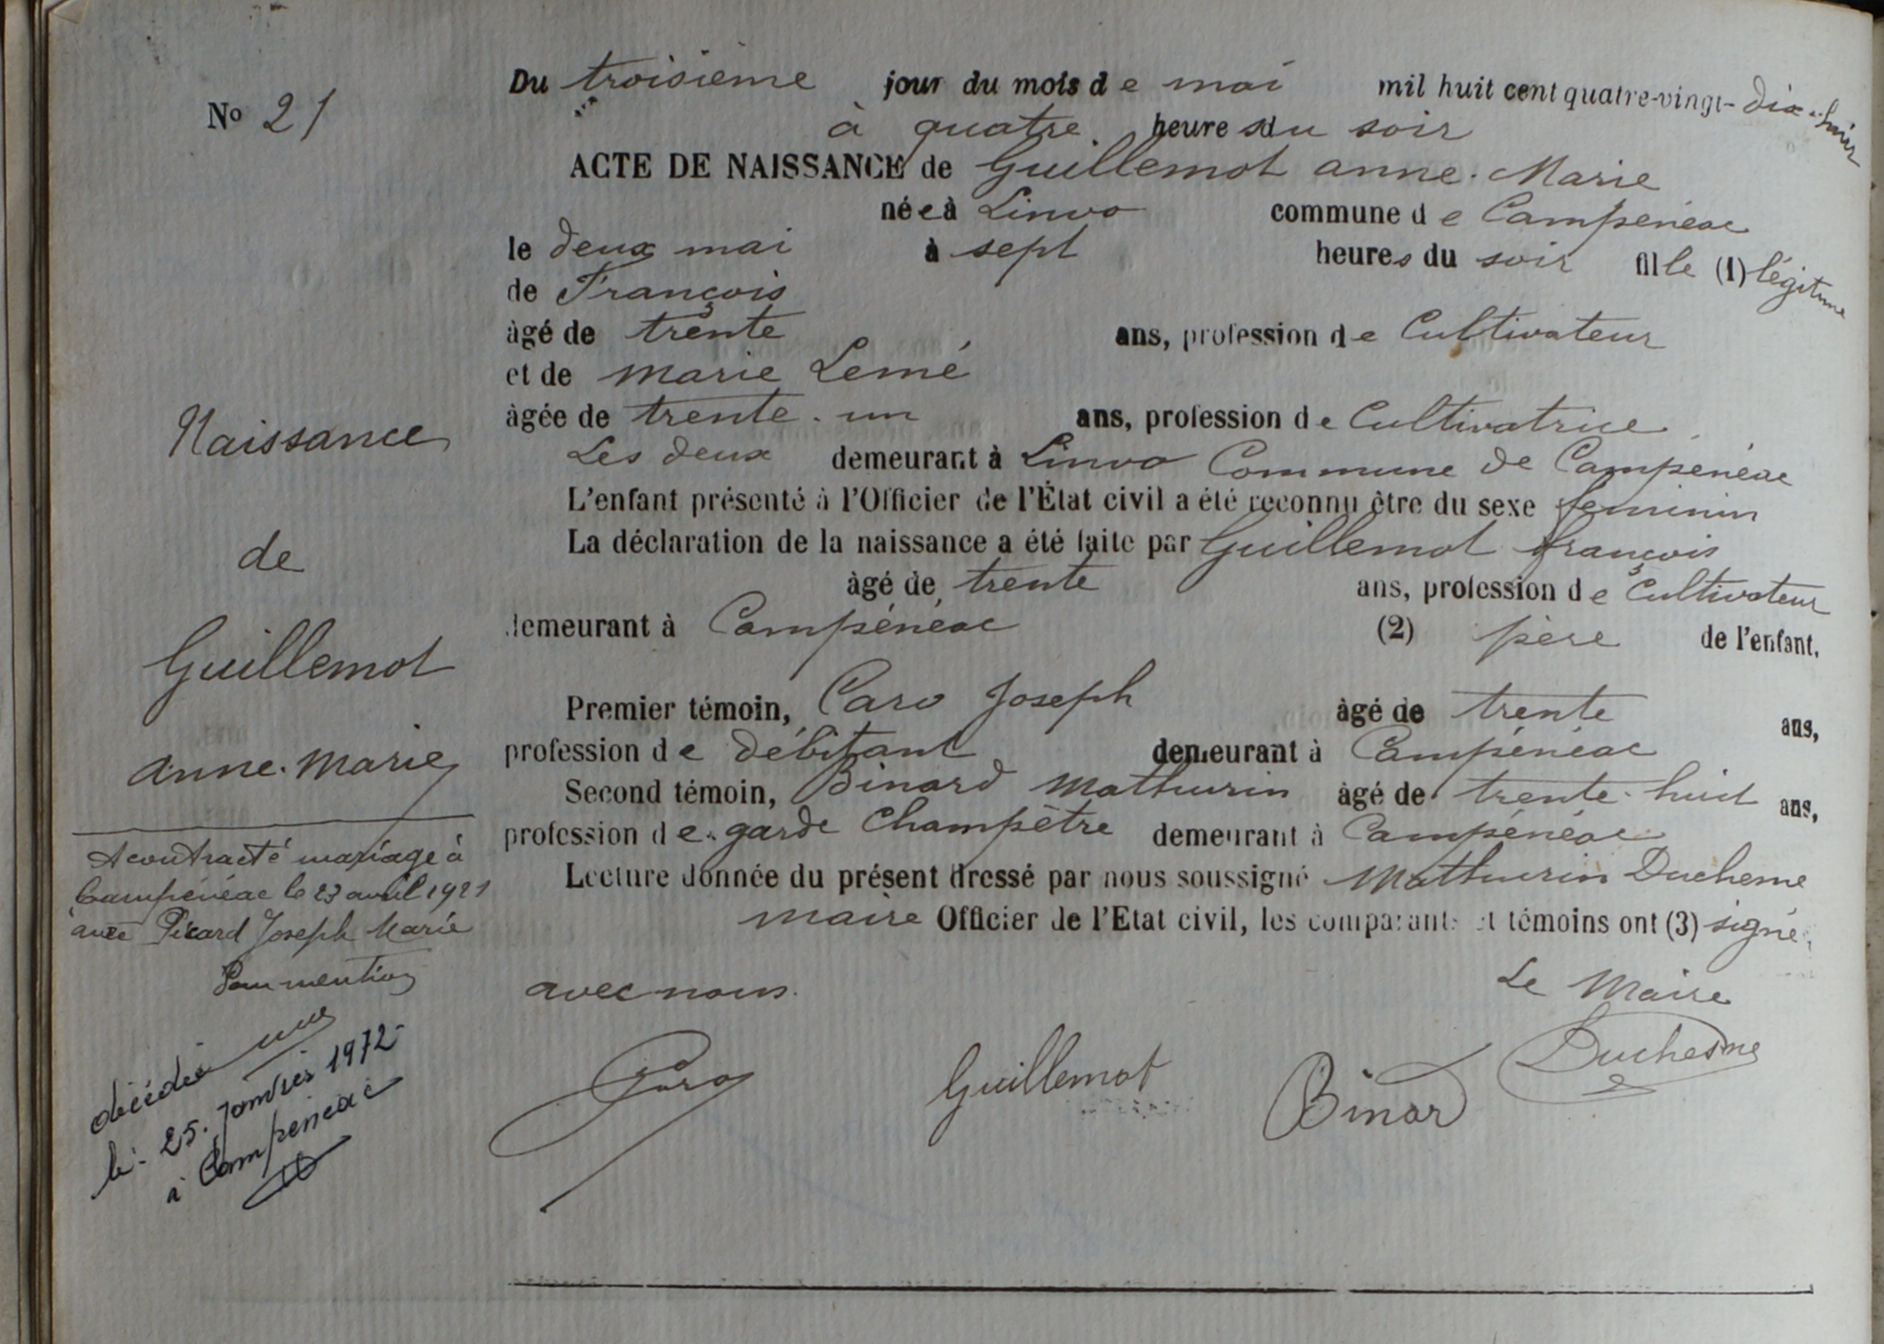 No 21
Naissance
de
Guillemot
anne. Marie
A contracté mariage à
Campénéac le 23 avril 1921
avec Picard Joseph Marie
Pour mention
décédée
le. 25. janvier 1972
à Campénéac
Du troisième jour du mois de mai mil huit cent quatre-vingt-dix-huit
à quatre heures du soir
ACTE DE NAISSANCE de Guillemot anne. Marie
née à Linvo commune de Campénéac
le deux mai à sept heures du soir fille (1) légitime
de François
âgé de trente ans, profession de Cultivateur
et de Marie Lemé
âgée de trente. un ans, profession de Cultivatrice
Les deux demeurant à Linvo Commune de Campénéac
L'enfant présenté à l'Officier de l'État civil a été reconnu être du sexe feminin
La déclaration de la naissance a été faite par Guillemot françois
âgé de trente ans, profession de Cultivateur
demeurant à Campénéac (2) père de l'enfant.
Premier témoin, Caro Joseph âgé de trente ans,
profession de débitant demeurant à Campénéac
Second témoin, Binard Mathurin âgé de trente-huit ans,
profession de garde Champêtre demeurant à Campénéac
Lecture donnée du présent dressé par nous soussigné Mathurin Duchesne
maire Officier de l'Etat civil, les comparants et témoins ont (3) signé
avec nous.
Le Maire
Caro Guillemot Binard Duchesne